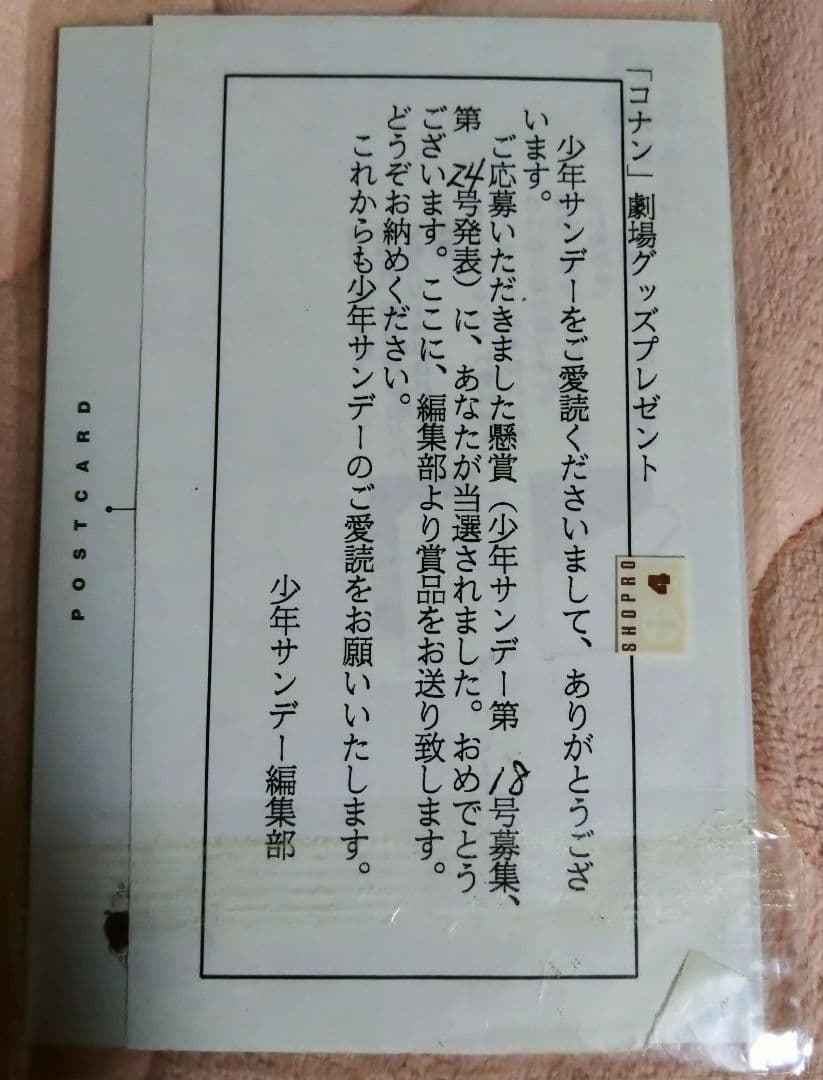 「コナン」劇場グッズプレゼント
少年サンデーをご愛読くださいまして、ありがとうござ
います。
ご応募いただきました懸賞（少年サンデー第 18号募集、
第 24号発表）に、あなたが当選されました。おめでとう
ございます。ここに、編集部より賞品をお送り致します。
どうぞお納めください。
これからも少年サンデーのご愛読をお願いいたします。
少年サンデー編集部
SHOPRO
4
POSTCARD